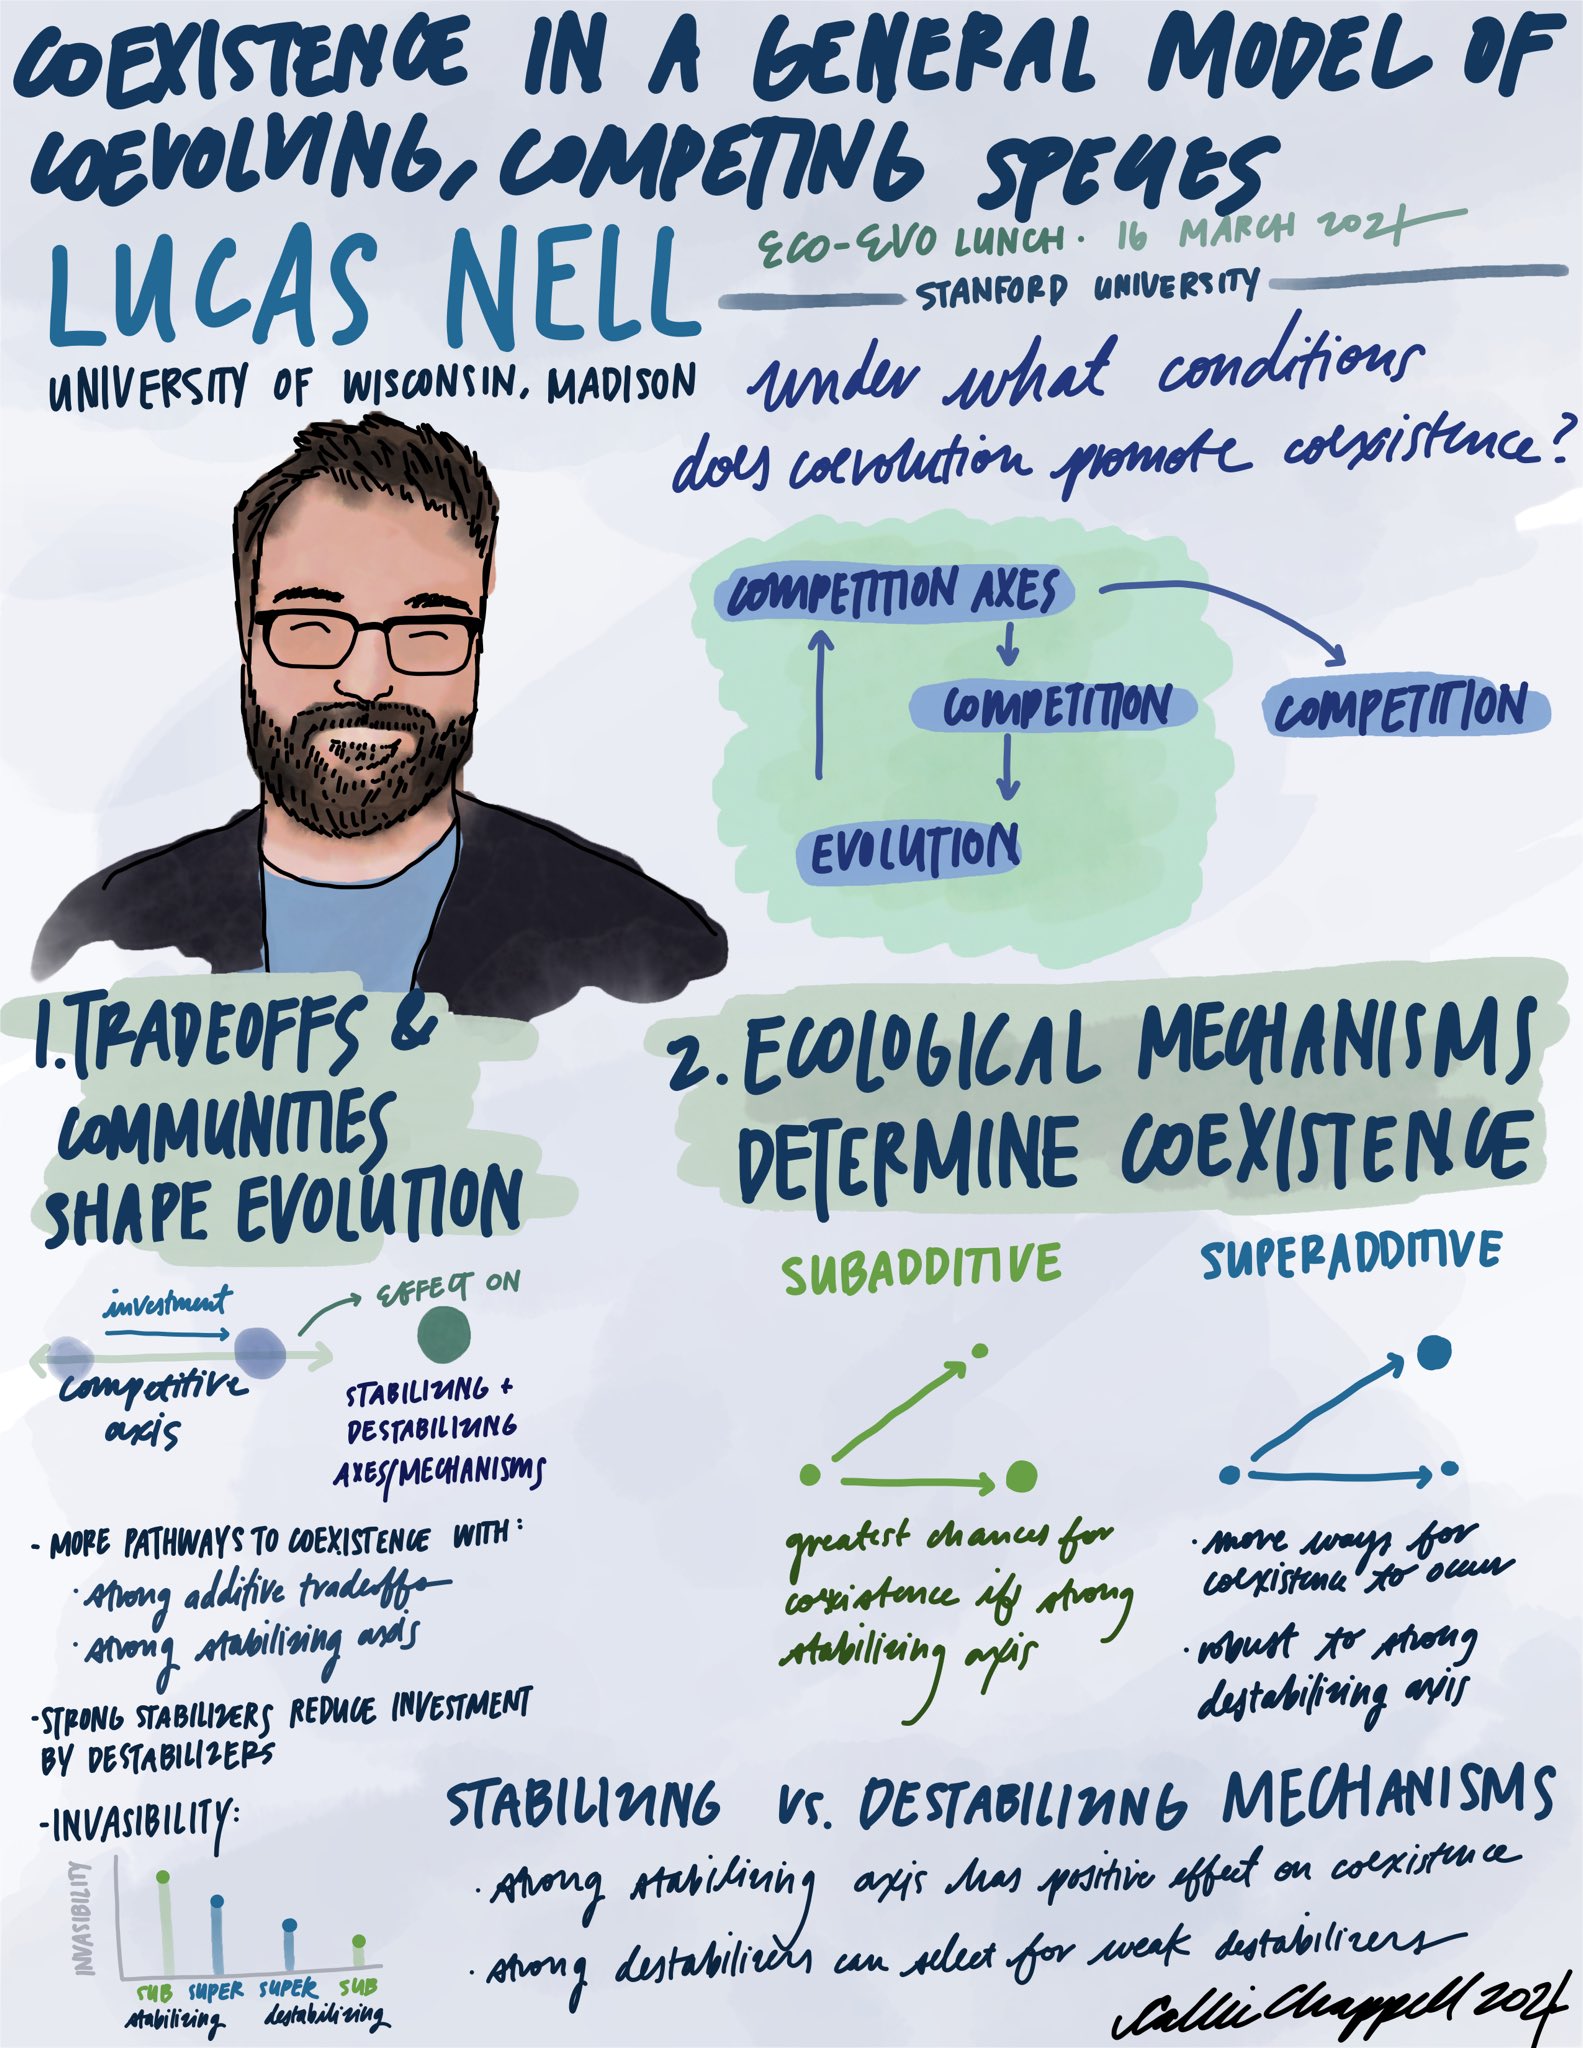 COEXISTENCE IN A GENERAL MODEL OF
COEVOLVING, COMPETING SPECIES
LUCAS NELL
UNIVERSITY OF WISCONSIN, MADISON
ECO-EVO LUNCH · 16 MARCH 2021
STANFORD UNIVERSITY
under what conditions
does coevolution promote coexistence?
COMPETITION AXES
COMPETITION
COMPETITION
EVOLUTION
1. TRADEOFFS &
COMMUNITIES
SHAPE EVOLUTION
investment
EFFECT ON
competitive
axis
STABILIZING +
DESTABILIZING
AXES/MECHANISMS
- MORE PATHWAYS TO COEXISTENCE WITH:
· strong additive tradeoffs
· strong stabilizing axis
- STRONG STABILIZERS REDUCE INVESTMENT
BY DESTABILIZERS
- INVASIBILITY:
INVASIBILITY
SUB SUPER SUPER SUB
stabilizing destabilizing
2. ECOLOGICAL MECHANISMS
DETERMINE COEXISTENCE
SUBADDITIVE
greatest chances for
coexistence if strong
stabilizing axis
SUPERADDITIVE
· more ways for
coexistence to occur
· robust to strong
destabilizing axis
STABILIZING VS. DESTABILIZING MECHANISMS
· strong stabilizing axis has positive effect on coexistence
· strong destabilizers can select for weak destabilizers
Callie Chappell 2021